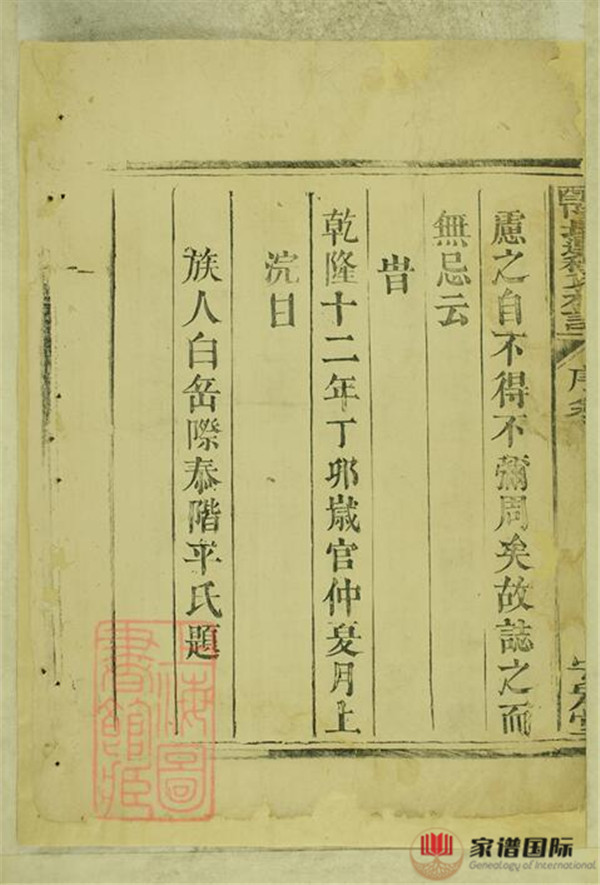 慮之自不得不彌周矣故誌之而
無忌云
旹
乾隆十二年丁邜歲官仲夏月上
浣日
族人白岳際泰階平氏題
序
上海圖
書館藏
家谱国际
Genealogy of International